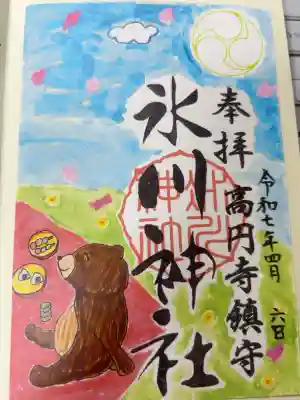 奉拝
高円寺鎮守
令和七年四月
六日
氷川神社